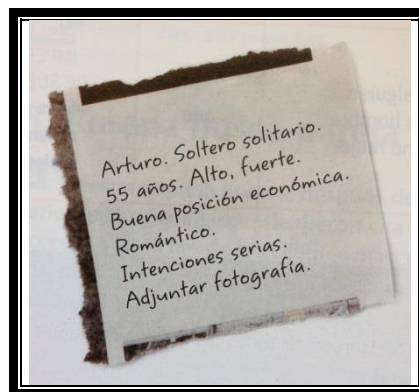 Arturo. Soltero solitario.
55 años. Alto, fuerte.
Buena posición económica.
Romántico.
Intenciones serias.
Adjuntar fotografía.